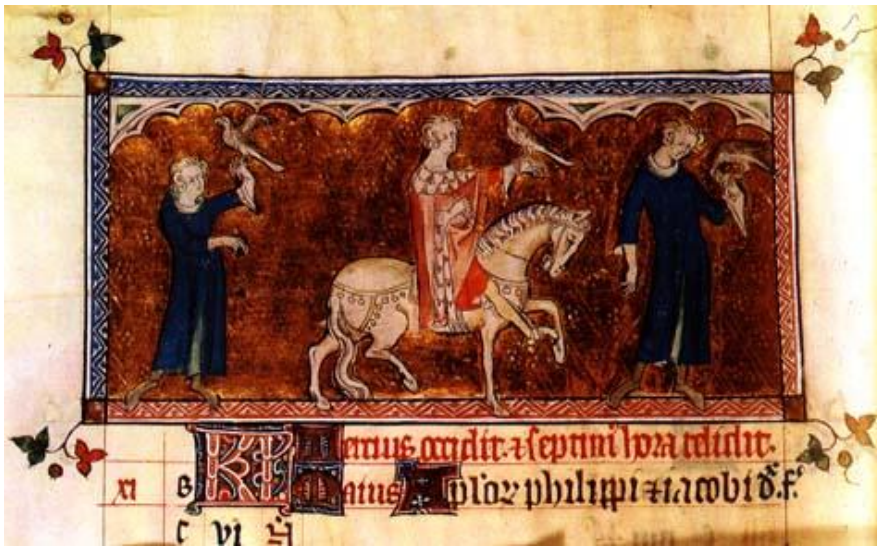 KL Tercius occidit ⁊ septim' hora relidit.
xi B Maius Aplor philippi ⁊ iacobi d. f.
c vi N